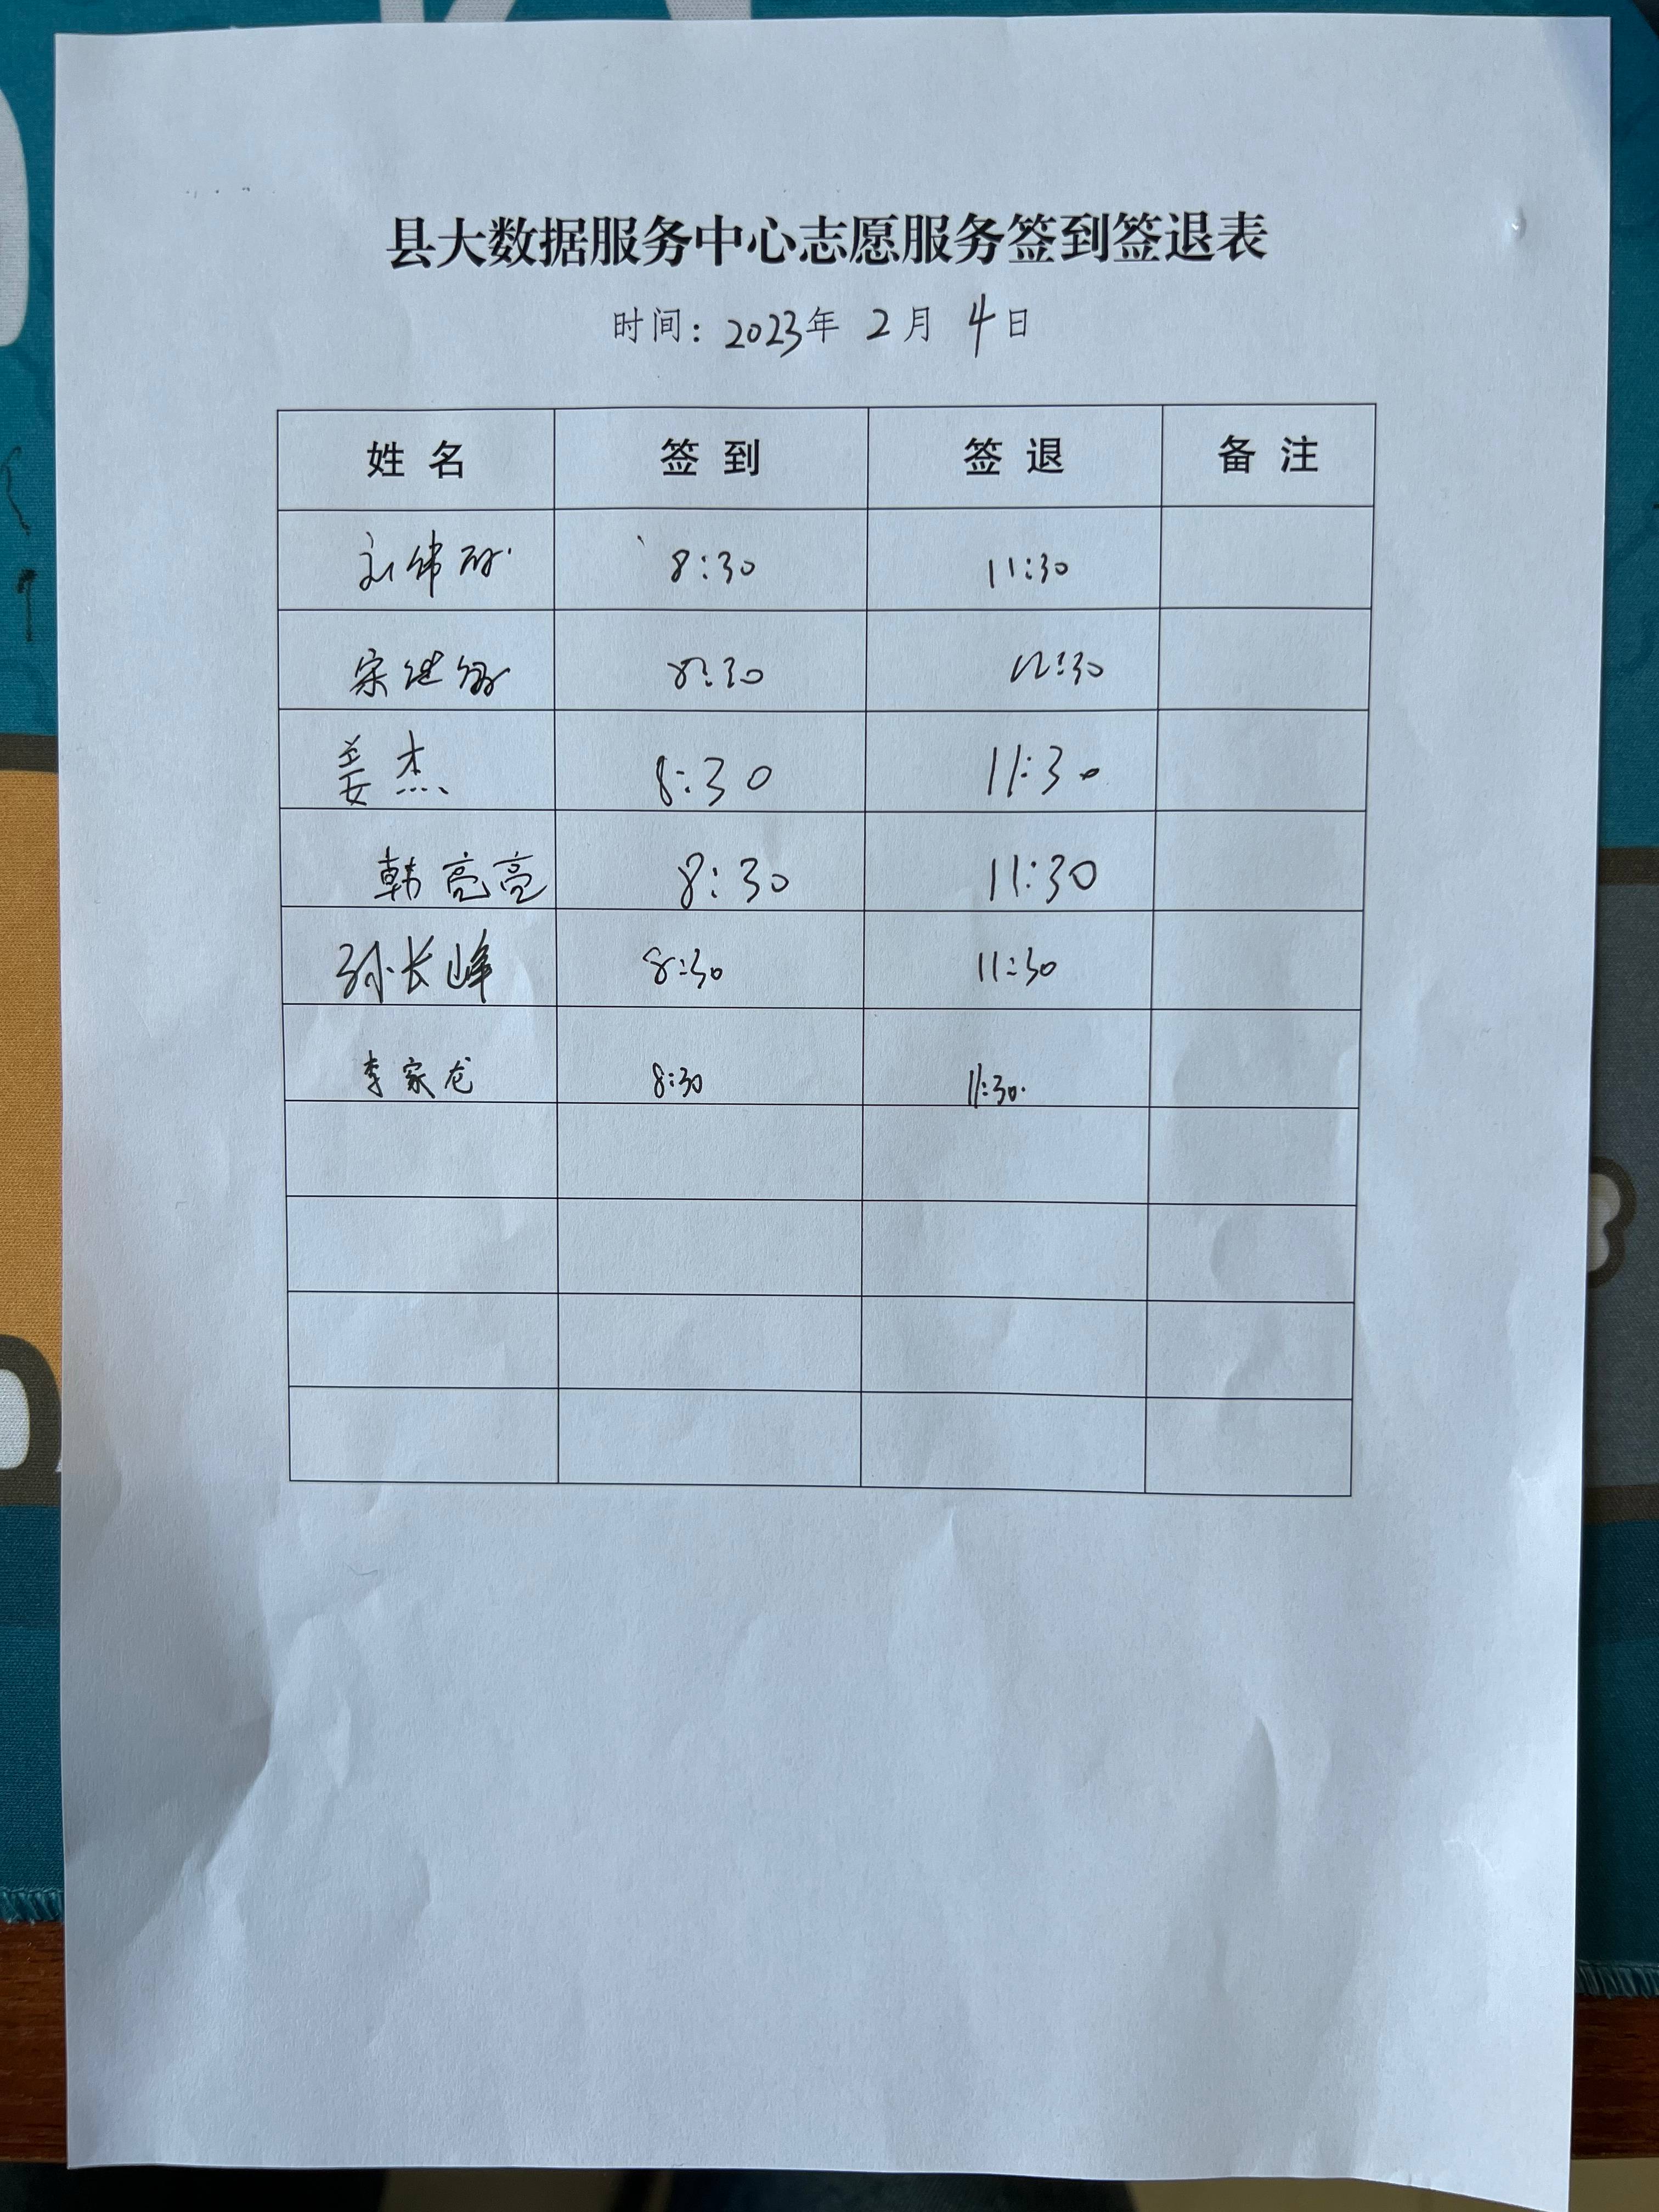 县大数据服务中心志愿服务签到签退表
时间：2023年 2月 4日
姓名 签到 签退 备注
8:30 11:30
宋 8:30
姜杰 8:30 11:30
韩亮亮 8:30 11:30
孙长峰 8:30 11:30
李家龙 8:30 11:30